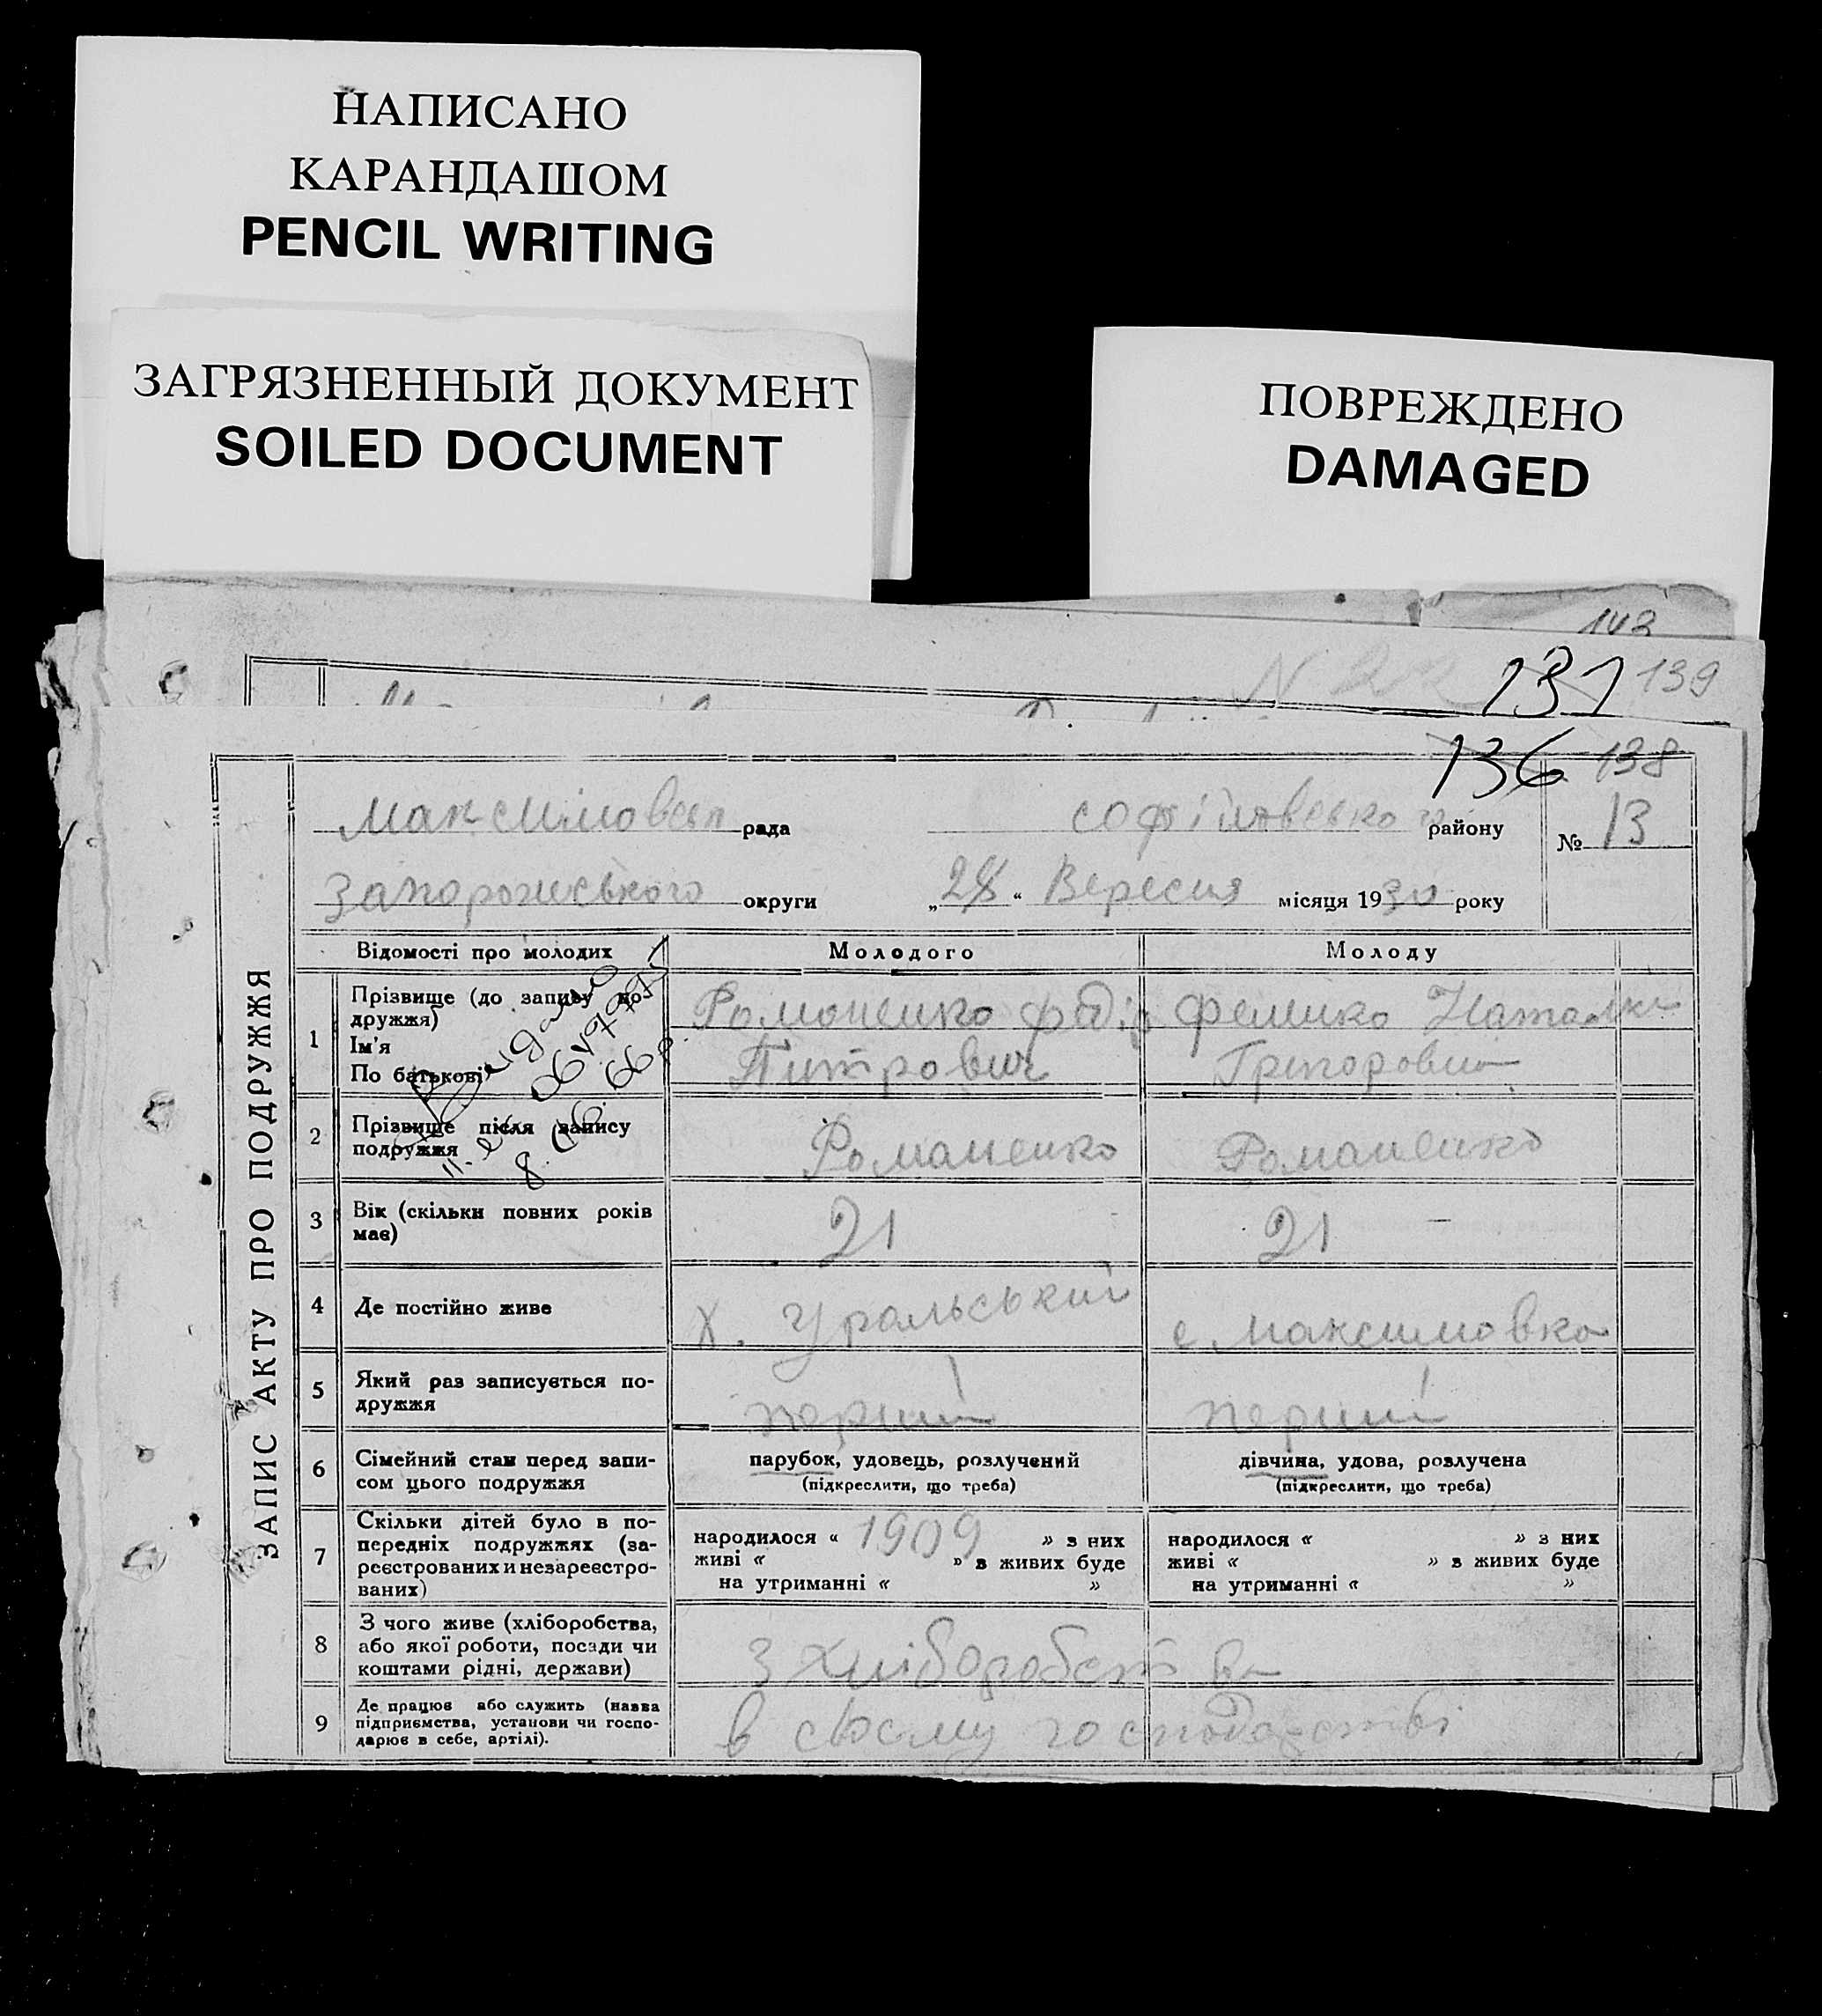 НАПИСАНО
КАРАНДАШОМ
PENCIL WRITING
ЗАГРЯЗНЕННЫЙ ДОКУМЕНТ
SOILED DOCUMENT
ПОВРЕЖДЕНО
DAMAGED
143
N 22 131 139
136 138
ЗАПИС АКТУ ПРО ПОДРУЖЖЯ
рада софіївського району № 13
округи „28“ Вересня місяця 1930 року
Відомості про молодих Молодого Молоду
1 Прізвище (до запису по-
дружжя)
Ім'я
По батькові
Романенко Федір
Питрович
Фенико Наталка
Григоровна
8. 66 р.
2 Прізвище після запису
подружжя
Романенко Романенко
3 Вік (скільки повних років
має)
21 21
4 Де постійно живе х. Уральський с. Максимовка
5 Який раз записується по-
дружжя
перший перший
6 Сімейний стан перед запи-
сом цього подружжя
парубок, удовець, розлучений
(підкреслити, що треба)
дівчина, удова, розлучена
(підкреслити, що треба)
7 Скільки дітей було в по-
передніх подружжях (за-
реєстрованих и незареєстро-
ваних)
народилося « 1909 » з них
живі « » з живих буде
на утриманні « »
народилося « » з них
живі « » з живих буде
на утриманні « »
8 З чого живе (хліборобства,
або якої роботи, посади чи
коштами рідні, держави)
З хліборобства
9 Де працює або служить (назва
підприємства, установи чи госпо-
дарює в себе, артілі).
в своєму господарстві